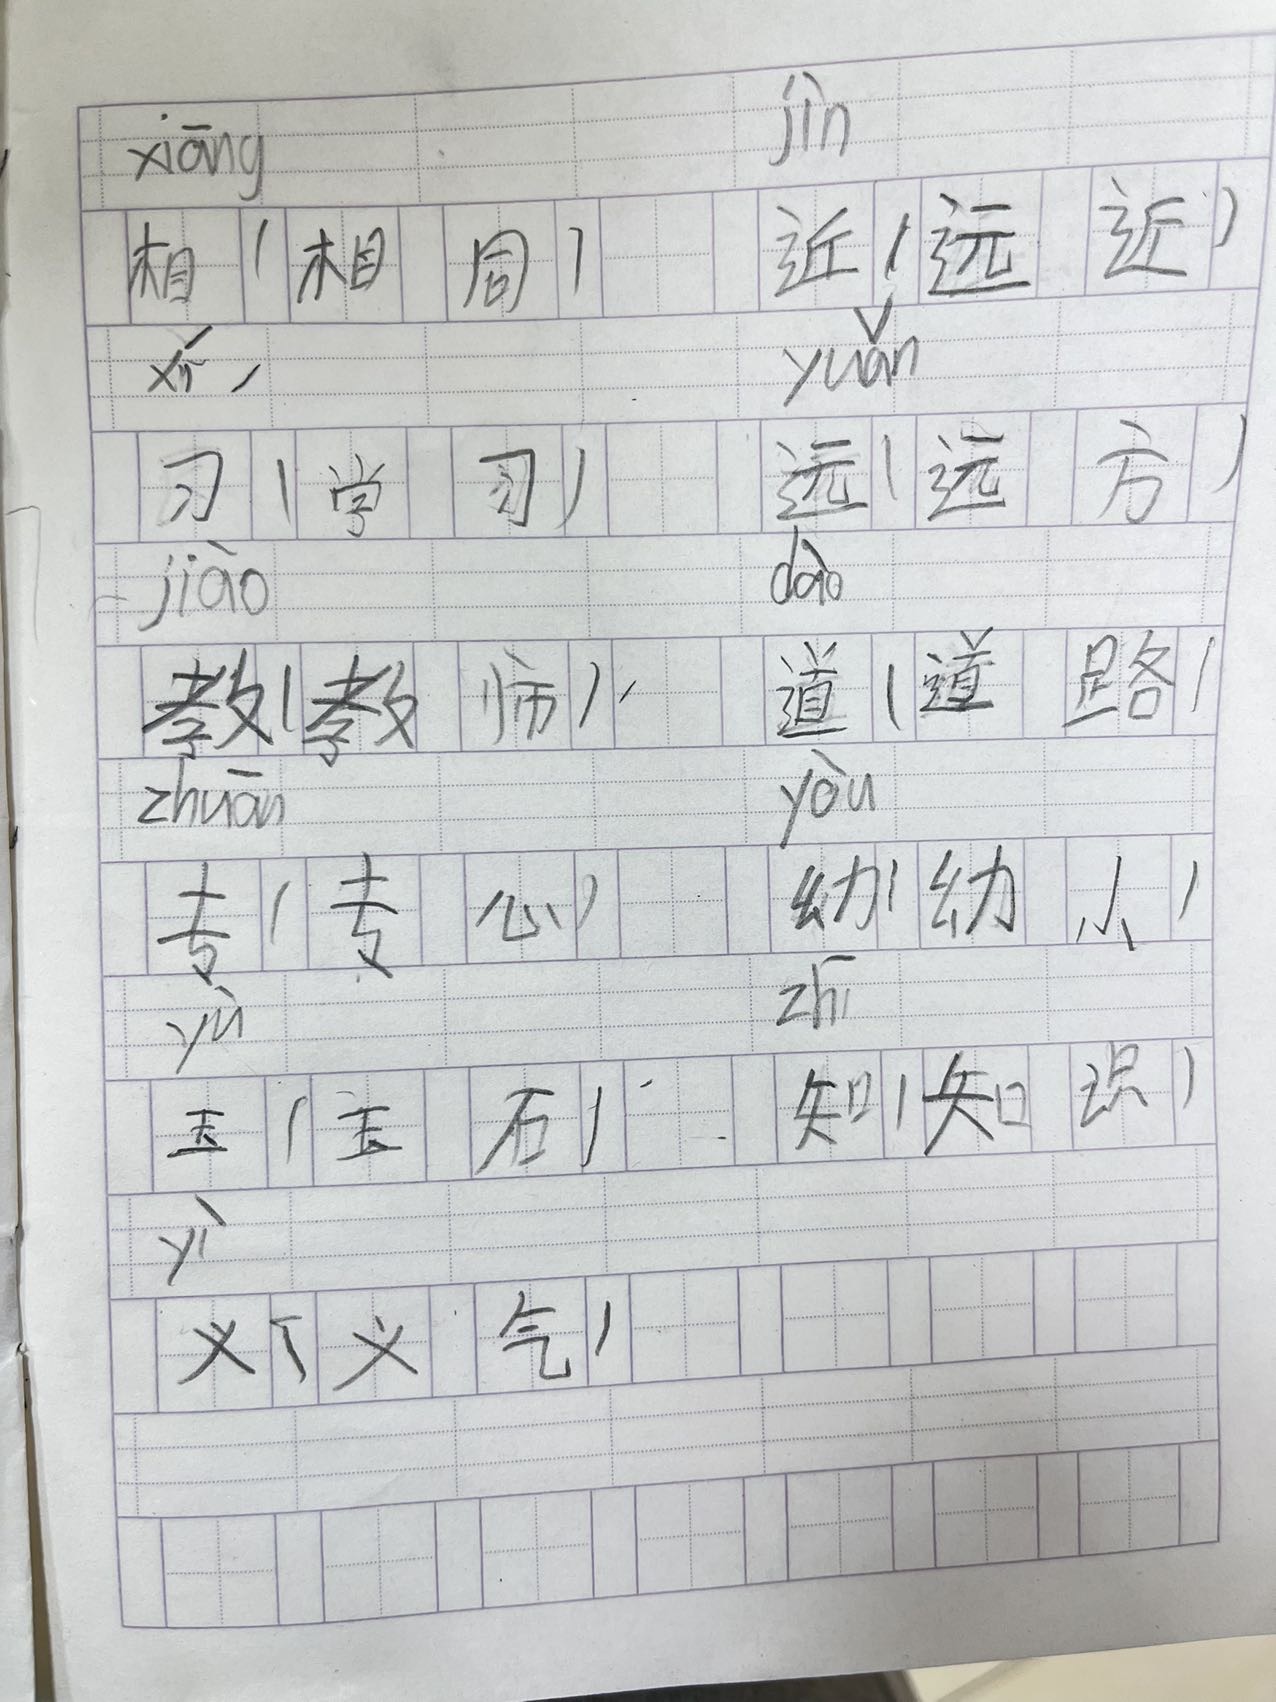 xiāng jìn
相(相同) 近(远近)
xí yuǎn
习(学习) 远(远方)
jiào dào
教(教师) 道(道路)
zhuān yòu
专(专心) 幼(幼小)
yù zhī
玉(玉石) 知(知识)
yì
义(义气)